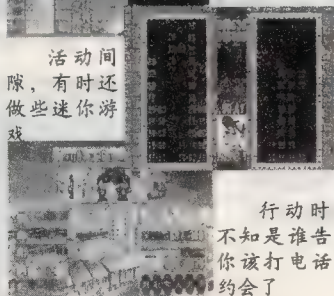 活动间
隙，有时还
做些迷你游
戏
行动时
不知是谁告
你该打电话
约会了